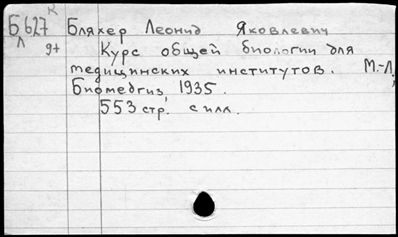 К
Б627 Бляхер Леонид Яковлевич
Л 9+ Курс общей биологии для
медицинских институтов. М.-Л.,
Биомедгиз, 1935.
553 стр. с илл.